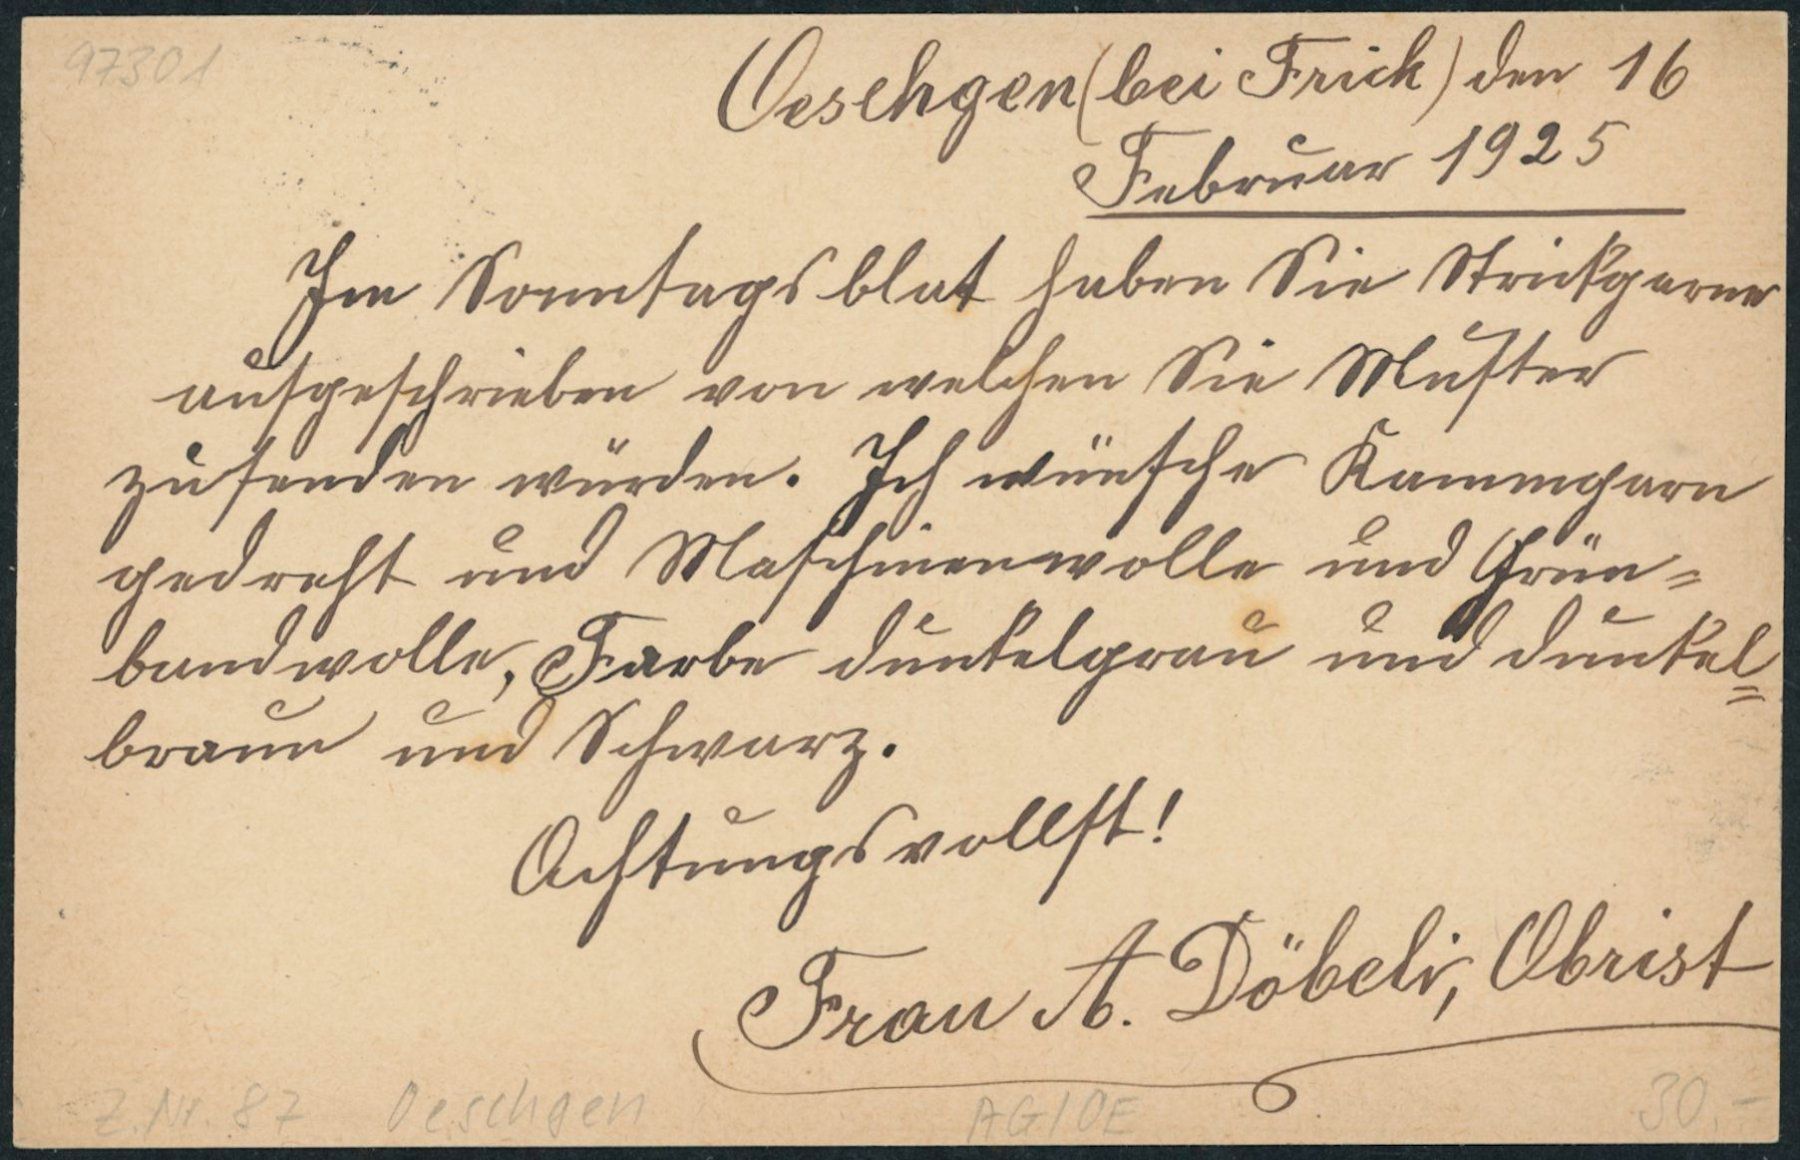 97301
Oeschgen (bei Frick) den 16
Februar 1925
Im Sonntagsblat haben Sie Strickgarne
ausgeschrieben von welchen Sie Muster
zusenden würden. Ich wünsche Kammgarn
gedreht und Maschinenwolle und Grün=
bandwolle, Farbe dunkelgrau und dunkel=
braun und Schwarz.
Achtungsvollst!
Frau A. Döbeli, Obrist
Z. Nr. 87 Oeschgen AG/OE 30.-